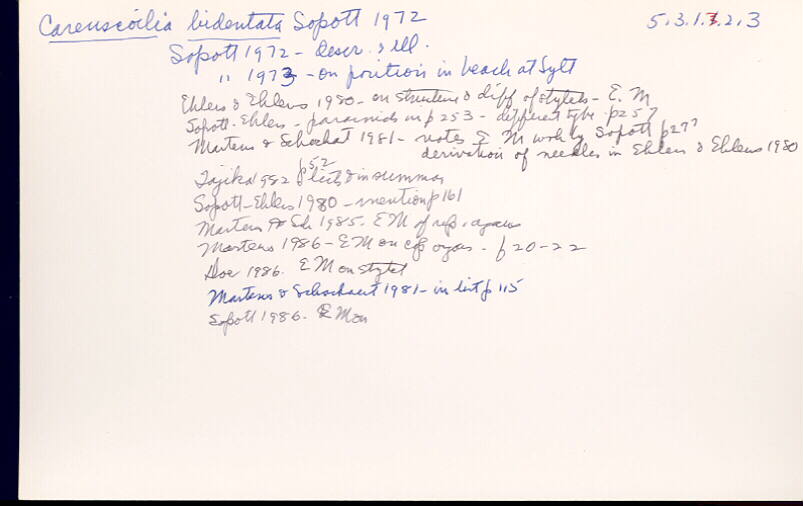 Carenscoilia bidentata Sopott 1972 5.3.1.3.2.3
Sopott 1972 - descr. & ill.
" 1973 - on position in beach at Sylt
Ehlers & Ehlers 1980 - on structure & diff of stylets - E. M
Sopott-Ehlers - paracnids on p 253 - different type - p257
Martens & Schockaert 1981 - notes E M work by Sopott p277
derivation of needles in Ehlers & Ehlers 1980
Tajika 1982 p 52 lists in summary
Sopott-Ehlers 1980 - mention p 161
Martens & Sch 1985. E M of rep. organs
Martens 1986 - E M on cop organs - p 20-22
Doe 1986. E M on stylet
Martens & Schockaert 1981 - in list p 115
Sopott 1986. E M on